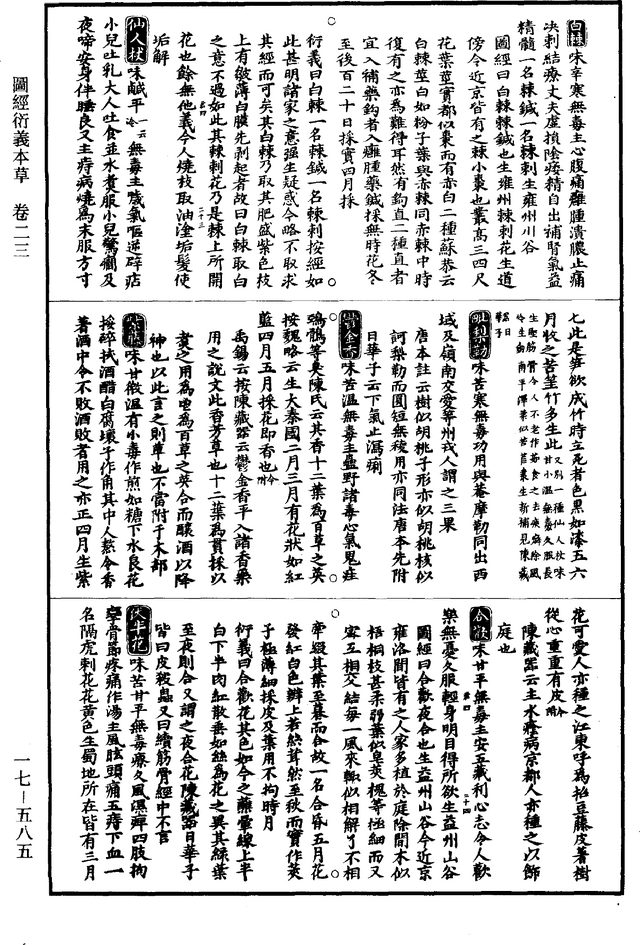 圖經衍義本草　卷二三
一七—五八五
白棘 味辛寒無毒主心腹痛癰腫潰膿止痛
決刺結療丈夫虛損陰痿精自出補腎氣益
精髓一名棘鍼一名棘刺生雍州川谷
圖經曰白棘棘鍼也生雍州棘刺花生道
傍今近京皆有之棘小棗也叢高三四尺
花葉莖實都似棗而有赤白二種蘇恭云
白棘莖白如粉子葉與赤棘同赤棘中時
復有之亦為難得耳然有鉤直二種直者
宜入補藥鉤者入癰腫藥鍼採無時花冬
至後百二十日採實四月採
衍義曰白棘一名棘鍼一名棘刺按經如
此甚明諸家之意強生疑惑今略不取求
其經而可矣其白棘乃取其肥盛紫色枝
上有皺薄白膜先剥起者故曰白棘取白
之意不過如此其棘刺花乃是棘上所開
花也餘無他義今人燒枝取油塗垢髮使
垢解
仙人杖 味鹹平一云冷無毒主噦氣嘔逆辟痁
小兒吐乳大人吐食並水煮服小兒驚癇及
夜啼安身伴睡良又主痔病燒為末服方寸
七此是笋欲成竹時立死者色黑如漆五六
月收之苦莖竹多生此又別一種仙人杖味
唐本註云樹似胡桃子形亦似胡桃核似
訶梨勒而圓短無稜用亦同法唐本先附
日華子云下氣止瀉痢
鬱金香 味苦溫無毒主蠱野諸毒心氣鬼疰
鵶鶻等臭陳氏云其香十二葉為百草之英
按魏略云生大秦國二月三月有花狀如紅
藍四月五月採花即香也今附
禹錫云按陳藏器云鬱金香平入諸香藥
用之說文此香芳草也十二葉為貫採以
煮之用為鬯為百草之英合而釀酒以降
神也以此言之則草也不當附于木部
紫藤 味甘微溫有小毒作煎如糖下水良花
挼碎拭酒醋白腐壞子作角其中人熬令香
著酒中令不敗酒敗者用之亦正四月生紫
花可愛人亦種之江東呼為招豆藤皮著樹
從心重重有皮今附
陳藏器云主水癊病京都人亦種之以飾
庭也
合歡 味甘平無毒主安五藏利心志令人歡
樂無憂久服輕身明目得所欲生益州山谷
圖經曰合歡夜合也生益州山谷今近京
雍洛間皆有之人家多植於庭除間木似
梧桐枝甚柔弱葉似皁莢槐等極細而又
密互相交結每一風來輒似相解了不相
牽綴其葉至暮而合故一名合昏五月花
發紅白色瓣上若絲茸然至秋而實作莢
子極薄細採皮及葉用不拘時月
衍義曰合歡花其色如今之醮暈線上半
白下半肉紅散垂如絲為花之異其綠葉
至夜則合又謂之夜合花陳藏器日華子
皆曰皮殺蟲又曰續筋骨經中不言
味苦甘平無毒療久風濕痺四肢拘
攣骨節疼痛作湯主風眩頭痛五痔下血一
名隔虎刺花花黃色生蜀地所在皆有三月